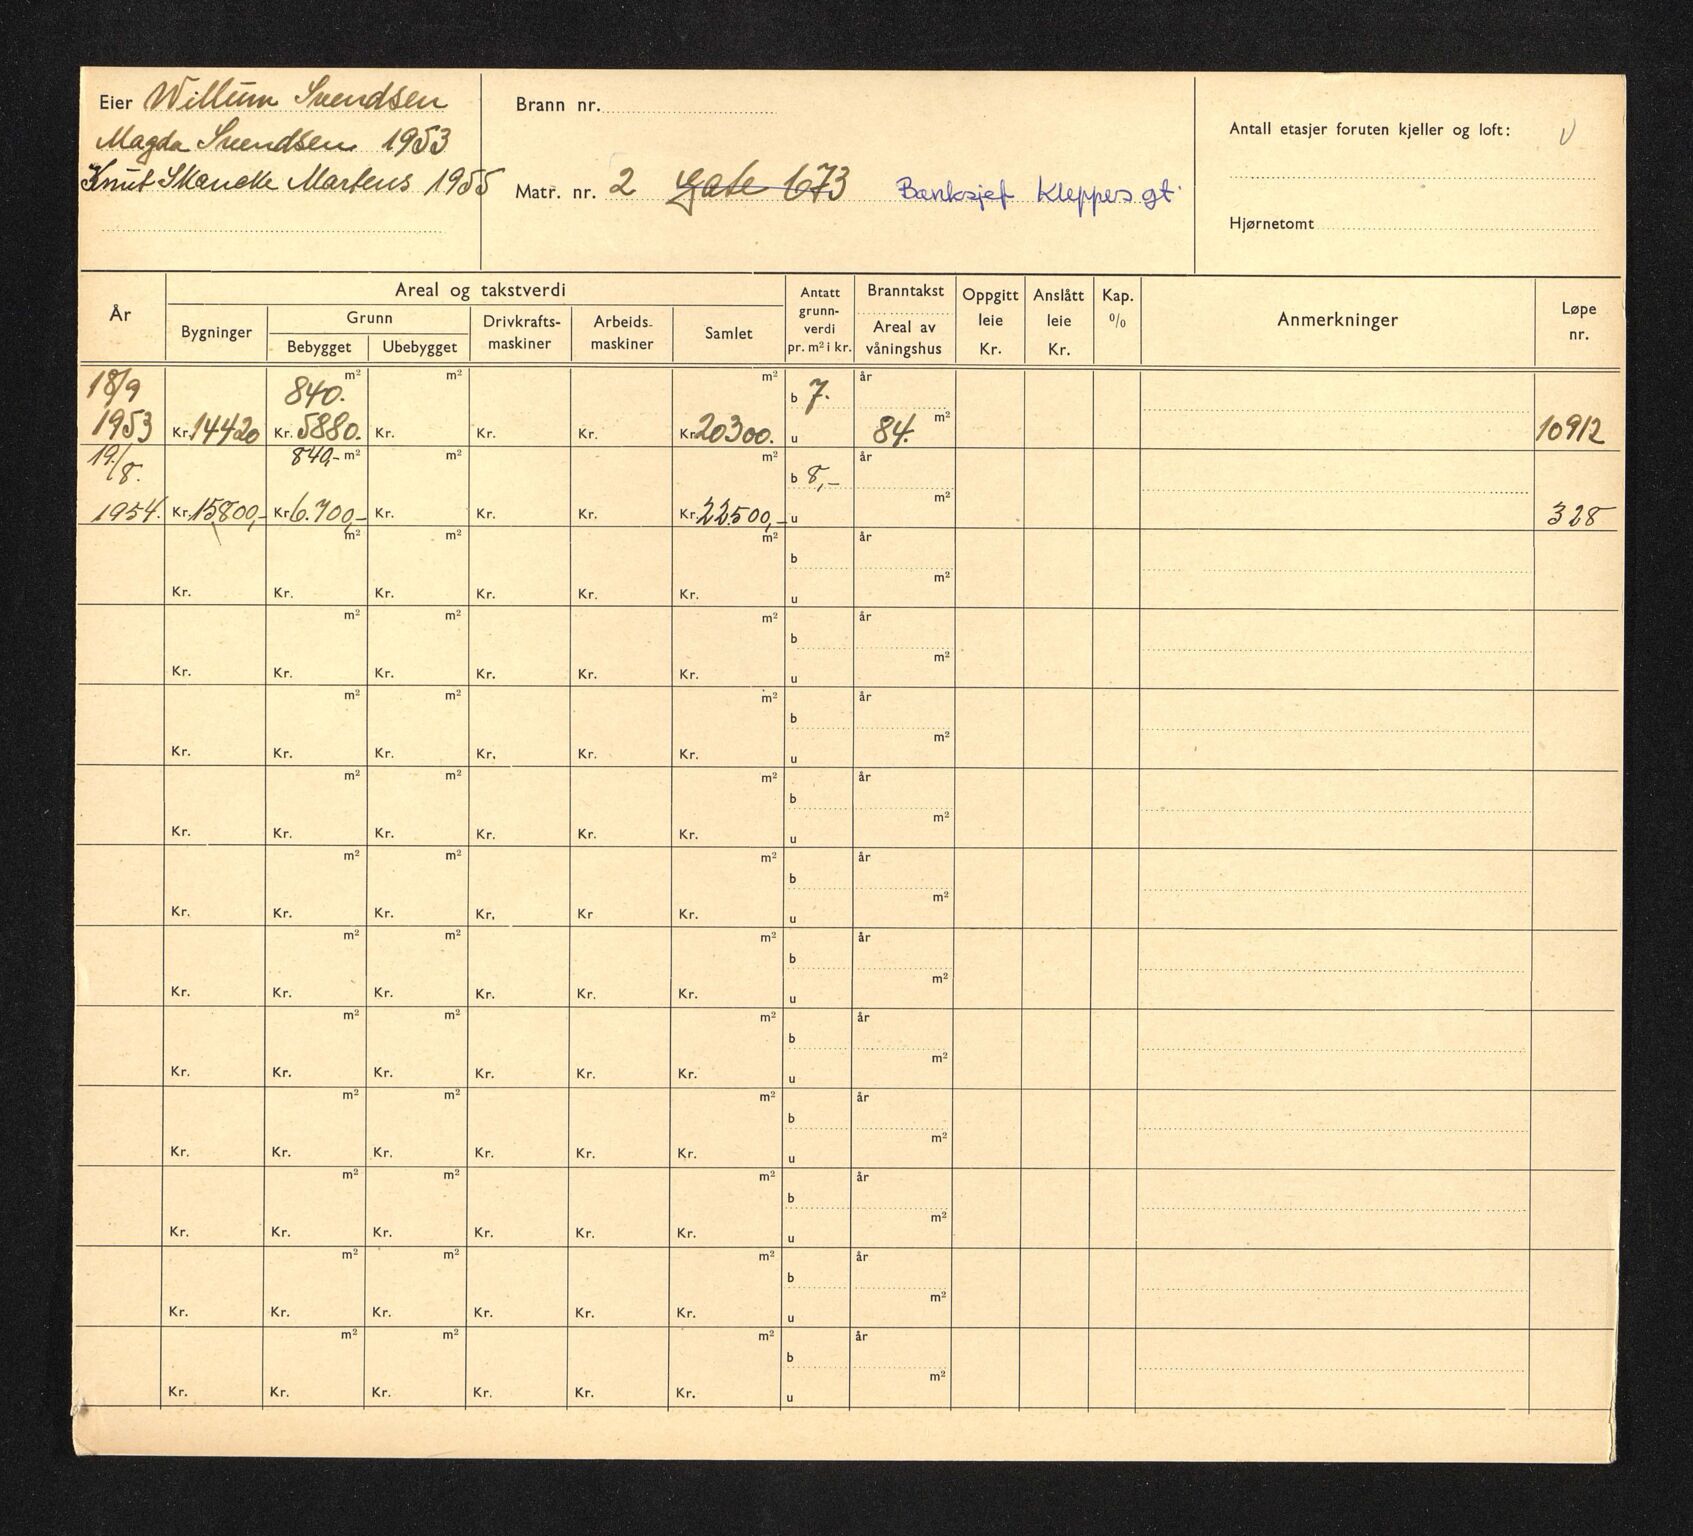 Eier Willum Svendsen
Magda Svendsen 1953
Knut Skancke Martens 1955
Brann nr.
Matr. nr. 2 Gate 673 Banksjef Kleppes gt.
Antall etasjer foruten kjeller og loft:
Hjørnetomt
År
Areal og takstverdi
Bygninger
Grunn
Bebygget Ubebygget
Drivkrafts-
maskiner
Arbeids-
maskiner
Samlet
Antatt
grunn-
verdi
pr. m² i kr.
Branntakst
Areal av
våningshus
Oppgitt
leie
Kr.
Anslått
leie
Kr.
Kap.
%
Anmerkninger
Løpe
nr.
18/9 840. m² m² m² b 7. år
1953 Kr. 14420 Kr. 5880. Kr. Kr. Kr. Kr. 20300. u 84. m² 10912
19./8. 840,- m² m² m² b 8,- år
1954. Kr. 15800,- Kr. 6.700,- Kr. Kr. Kr. Kr. 22500,- u m² 328
m² m² m² b år
Kr. Kr. Kr. Kr. Kr. Kr. u m²
m² m² m² b år
Kr. Kr. Kr. Kr. Kr. Kr. u m²
m² m² m² b år
Kr. Kr. Kr. Kr. Kr. Kr. u m²
m² m² m² b år
Kr. Kr. Kr. Kr. Kr. Kr. u m²
m² m² m² b år
Kr. Kr. Kr. Kr. Kr Kr. u m²
m² m² m² b år
Kr. Kr. Kr. Kr. Kr. Kr. u m²
m² m² m² b år
Kr. Kr. Kr. Kr. Kr. Kr. u m²
m² m² m² b år
Kr. Kr. Kr. Kr. Kr. Kr. u m²
m² m² m² b år
Kr. Kr. Kr. Kr. Kr. Kr. u m²
m² m² m² b år
Kr. Kr. Kr. Kr. Kr. Kr. u m²
m² m² m² b år
Kr. Kr. Kr. Kr. Kr. Kr. u m²